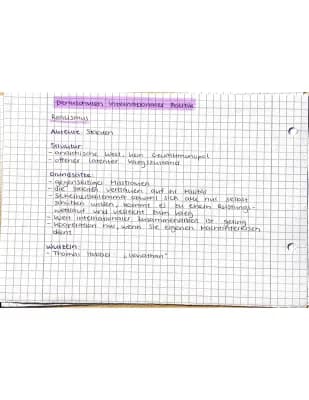 Denkschulen internationaler Politik
Realismus
Akteure: Staaten
Struktur:
- anarchische Welt, kein Gewaltmonopol
- offener latenter Kriegszustand
Grundsätze:
- gegenseitiges Misstrauen
- die Staaten vertrauen auf ihr Militär
- Sicherheitsdilemma: obwohl sich alle nur selbst
schützen wollen, kommt es zu einem Rüstungs-
wettlauf und vielleicht zum Krieg
- Wert internationaler Zusammenarbeit ist gering
- Kooperation nur, wenn sie eigenen Machtinteressen
dient
Wurzeln:
- Thomas Hobbes „Leviathan"